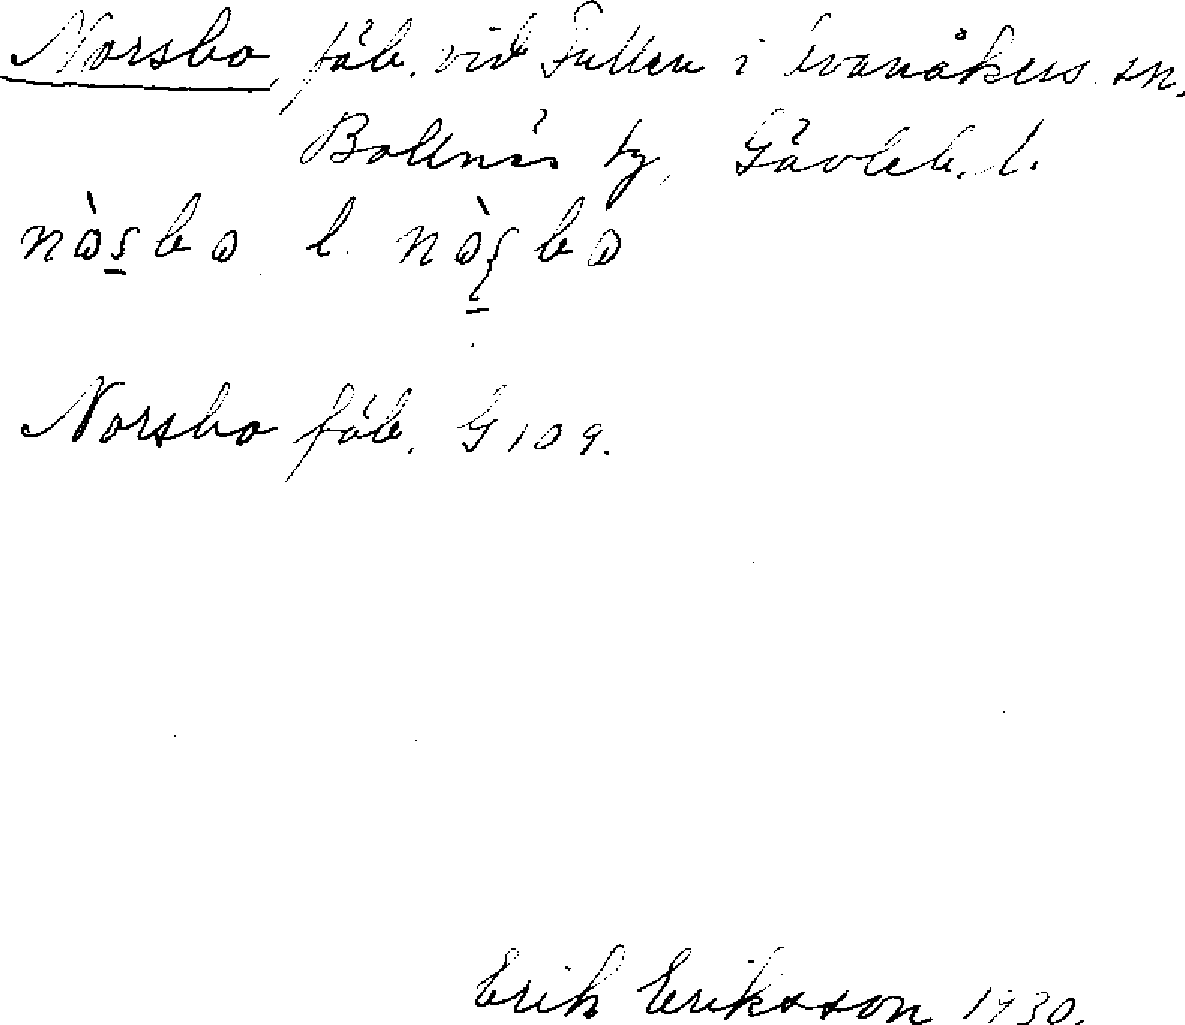 Norsbo, fäb. vid Fullen i Svanåkers sn.
Bollnäs tg, Gävleb. l.
l.
Norsbo fäb. G 109.
Erik Eriksson 1930.